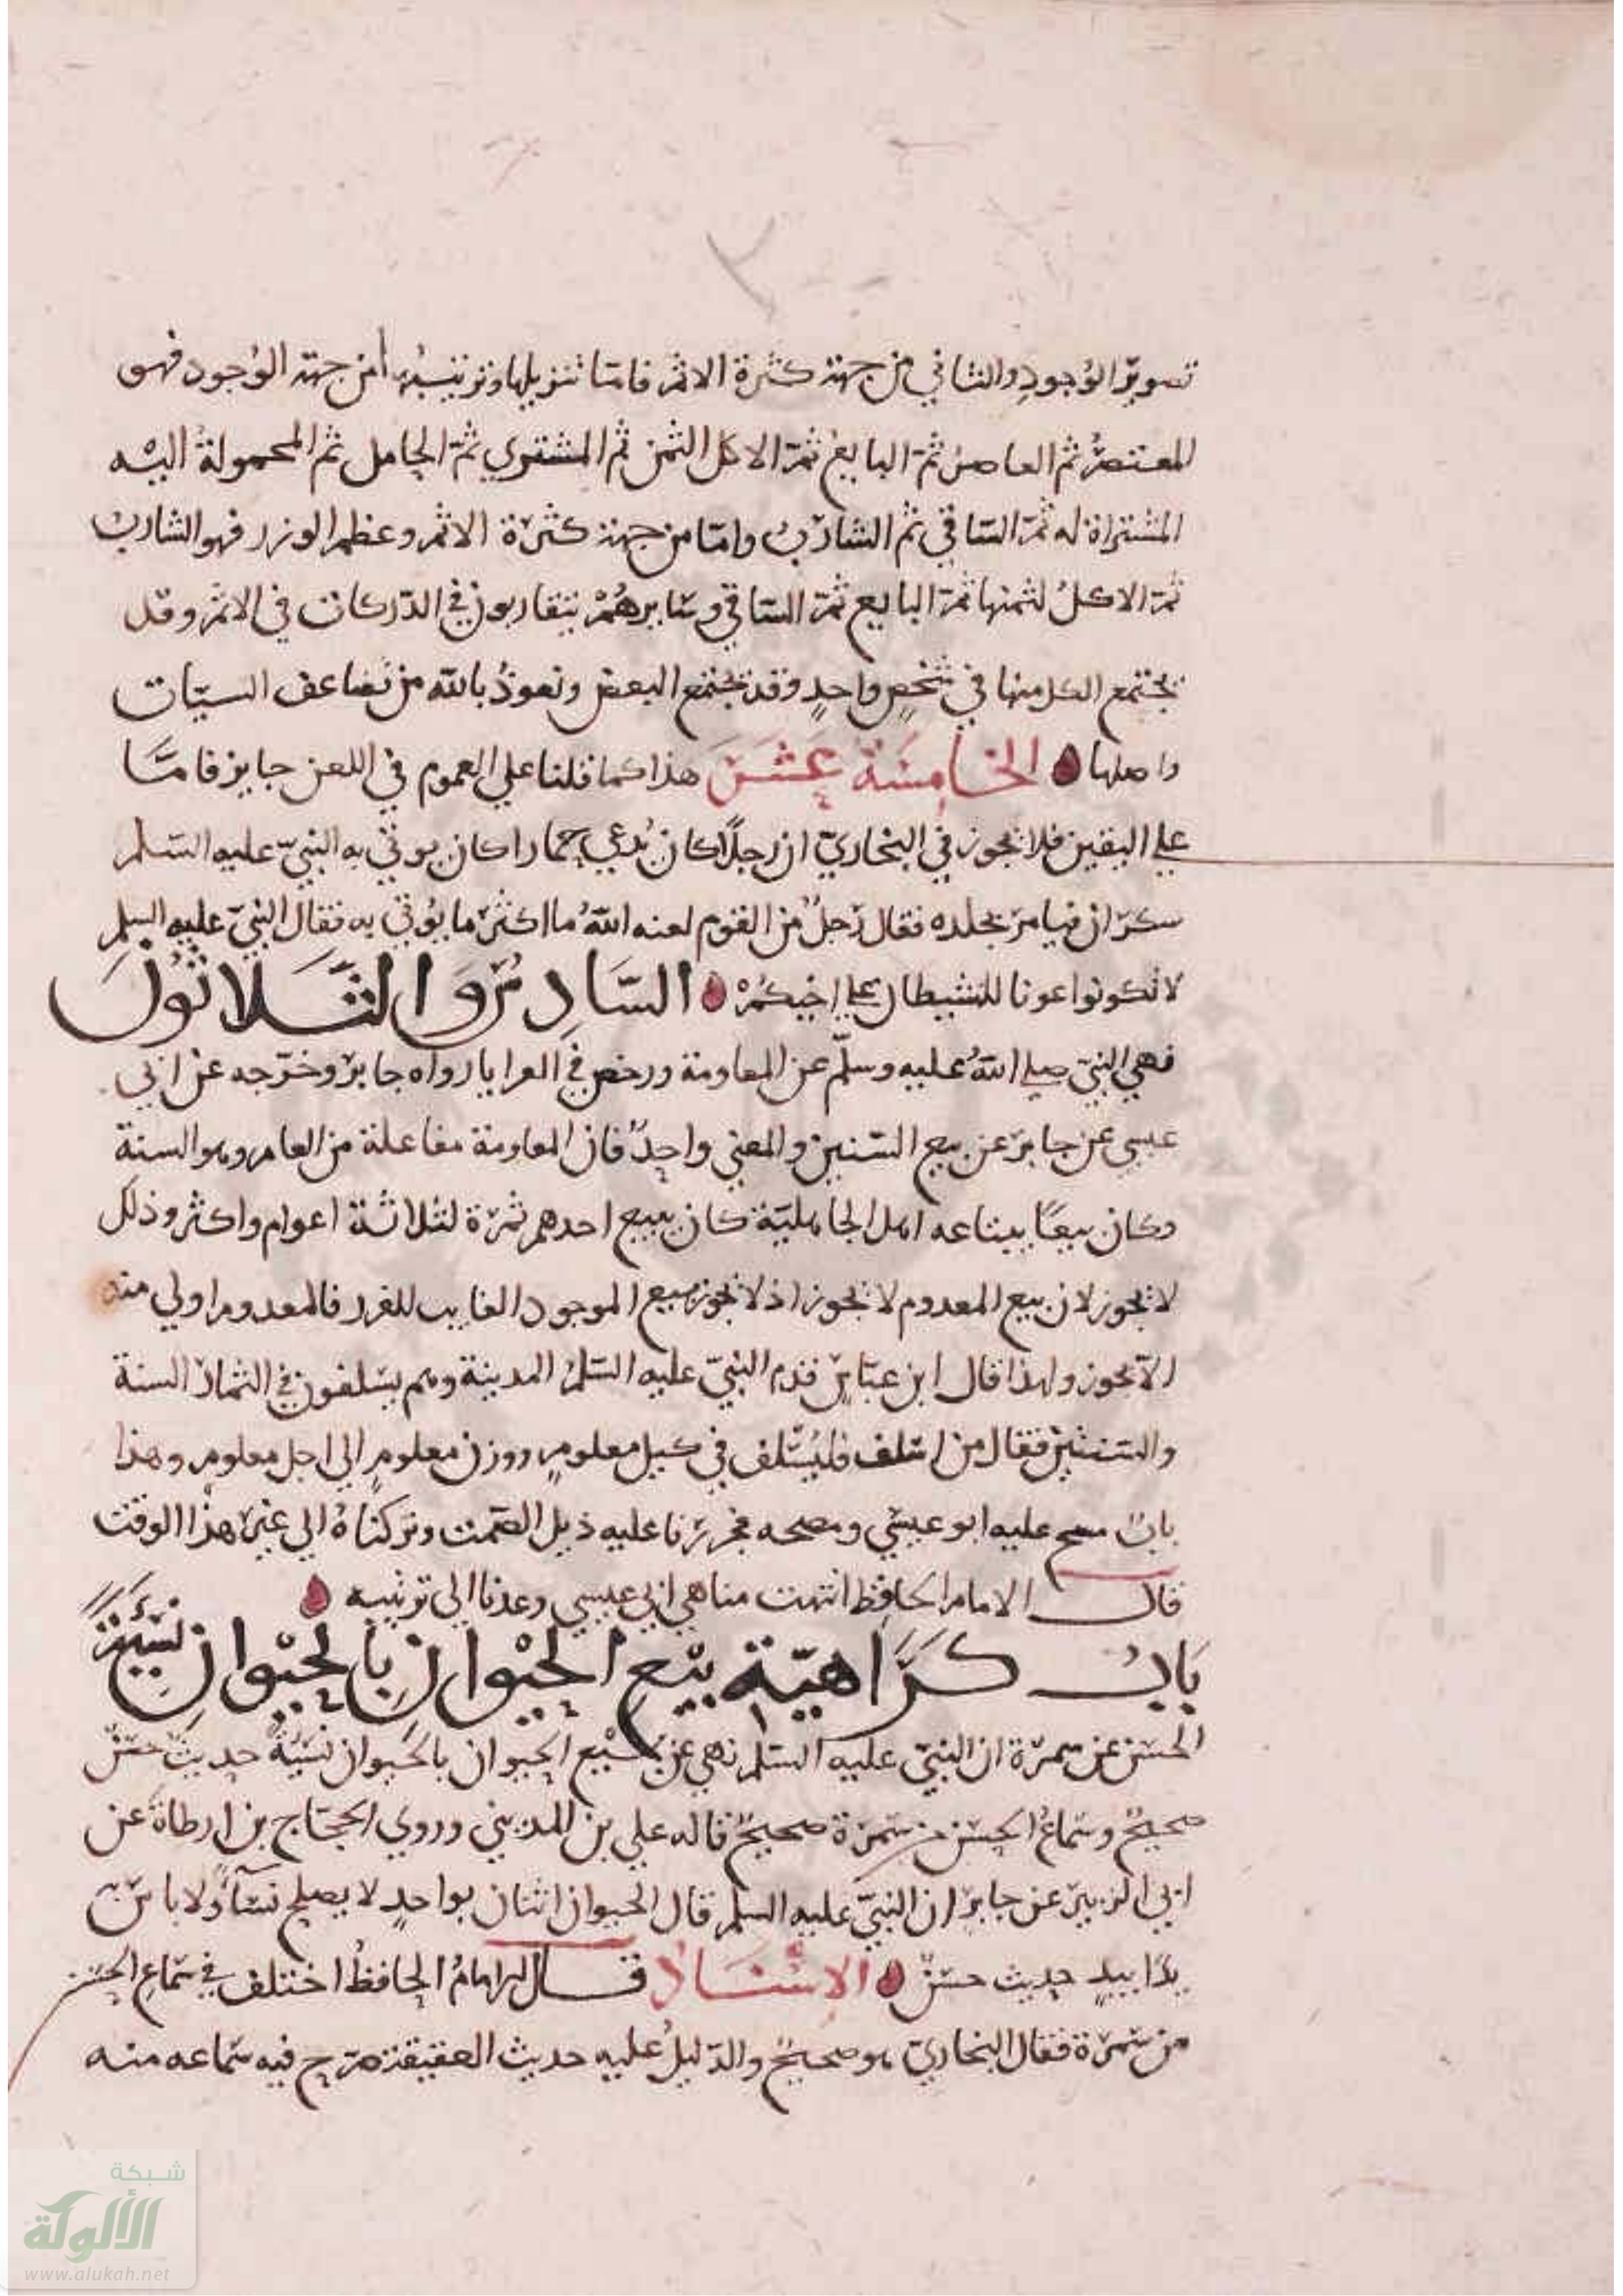 تصوير الوجود والثاني من جهة كثرة الاثم فاما تنزيلها وترتيبها من جهة الوجود فهو
المعتصر ثم العاصر ثم البايع ثم الاكل الثمن ثم المشتري ثم الحامل ثم المحمولة اليه
المشتراة له ثم الساقي ثم الشارب واما من جهة كثرة الاثم وعظم الوزر فهو الشارب
ثم الاكل لثمنها ثم البايع ثم الساقي وسايرهم يتقاربون في الدركات في الاثم وقد
يجتمع الكل منها في شخص واحد وقد يجتمع البعض ونعوذ بالله من تضاعف السيات
واصلها الخامسة عشر هذا كما قلنا علي العموم في اللعن جايز فاما
علي اليقين فلا يجوز في البخاري ان رجلا كان يدعي حمارا كان يوتي به النبي عليه السلم
سكران فيامر بجلده فقال رجل من القوم لعنه الله ما اكثر ما يوتي به فقال النبي عليه السلم
لا تكونوا عونا للشيطان علي اخيكم السادس والثلاثون
نهي النبي صلي الله عليه وسلم عن المعاومة ورخص في العرايا رواه جابر وخرجه عن ابي
عيسي عن جابر عن بيع السنين والمعني واحد فان المعاومة مفاعلة من العام وهو السنة
وكان بيعا يبتاعه اهل الجاهلية كان يبيع احدهم ثمرة لثلاثة اعوام واكثر وذلك
لا يجوز لان بيع المعدوم لا يجوز اذ لا يجوز بيع الموجود الغايب للغرر فالمعدوم اولي منه
الا يجوز ولهذا قال ابن عباس قدم النبي عليه السلم المدينة وهم يسلفون في الثمار السنة
والسنتين فقال من اسلف فليسلف في كيل معلوم ووزن معلوم الي اجل معلوم وهذا
باب عليه ابو عيسي وصححه فجررنا عليه ذيل الصمت وتركناه الي غير هذا الوقت
قال الامام الحافظ انتهت مناهي ابي عيسي وعدنا الي ترتيبه
باب كراهية بيع الحيوان بالحيوان نسيئة
الحسن عن سمرة ان النبي عليه السلم نهي عن بيع الحيوان بالحيوان نسيئة حديث حسن
صحيح وسماع الحسن من سمرة صحيح قاله علي بن المديني وروي الحجاج بن ارطاة عن
ابي الزبير عن جابر ان النبي عليه السلم قال الحيوان اثنان بواحد لا يصلح نسأ ولا باس به
يدا بيد حديث حسن الاسناد قال الامام الحافظ اختلف في سماع الحسن
من سمرة فقال البخاري هو صحيح والدليل عليه حديث العقيقة صرح فيه سماعه منه
شبكة
الألوكة
www.alukah.net